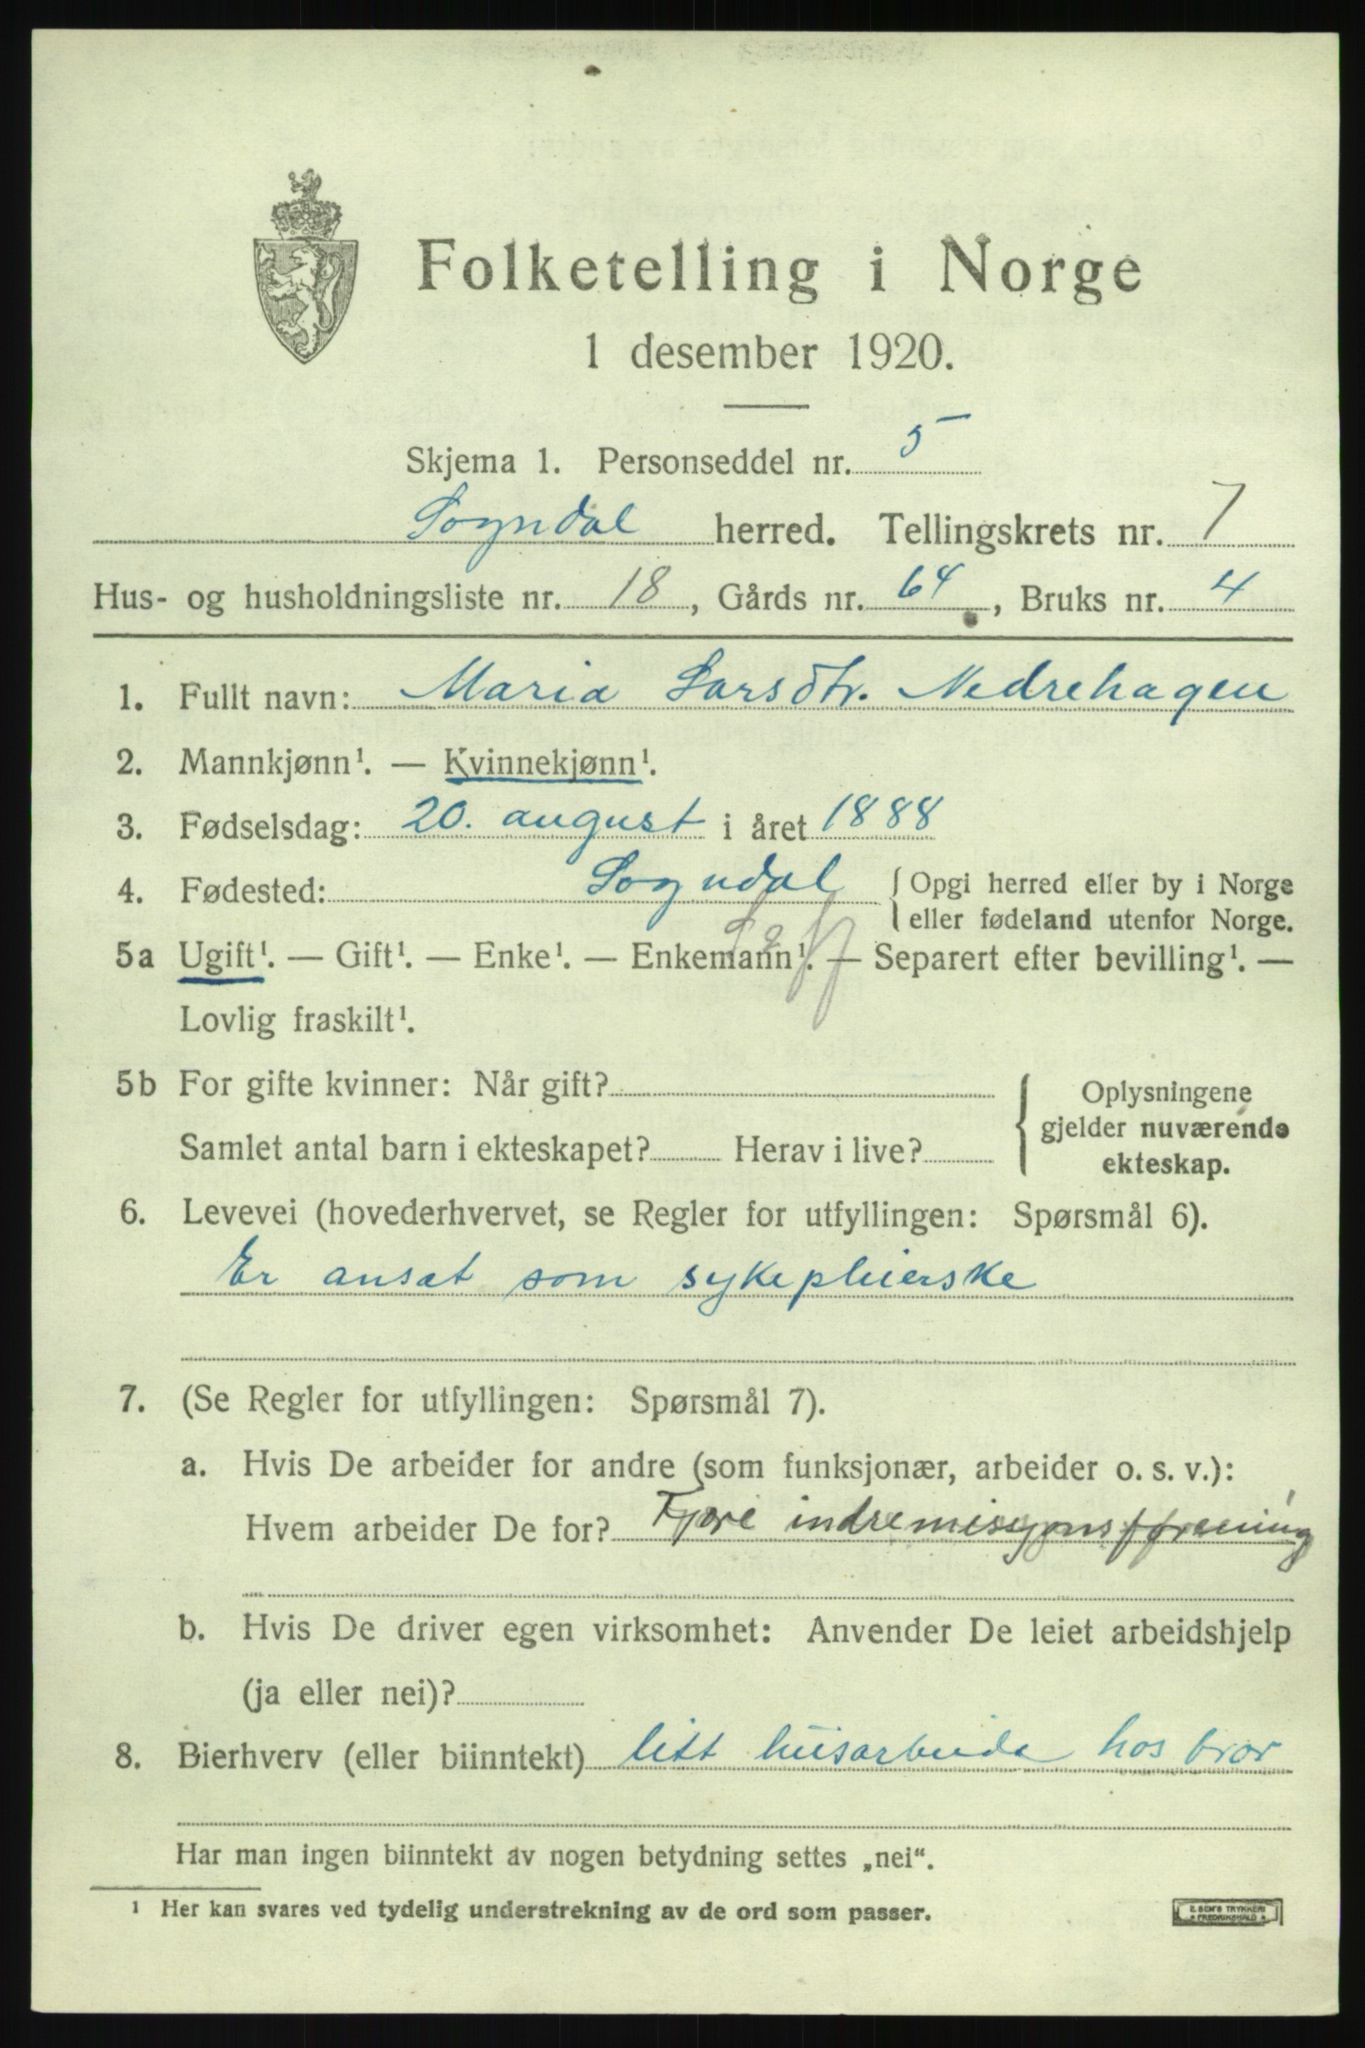 Folketelling i Norge
1 desember 1920.
Skjema 1. Personseddel nr. 5
Sogndal herred. Tellingskrets nr. 7
Hus- og husholdningsliste nr. 18, Gårds nr. 64, Bruks nr. 4
1. Fullt navn: Maria Larsdtr. Nedrehagen
2. Mannkjønn¹. — Kvinnekjønn¹.
3. Fødselsdag: 20. august i året 1888
4. Fødested: Sogndal { Opgi herred eller by i Norge
eller fødeland utenfor Norge.
5a Ugift¹. — Gift¹. — Enke¹. — Enkemann¹. — Separert efter bevilling¹. —
Lovlig fraskilt¹.
5b For gifte kvinner: Når gift? { Oplysningene
gjelder nuværende
Samlet antal barn i ekteskapet? Herav i live?
ekteskap.
6. Levevei (hovederhvervet, se Regler for utfyllingen: Spørsmål 6).
Er ansat som sykepleierske
7. (Se Regler for utfyllingen: Spørsmål 7).
a. Hvis De arbeider for andre (som funksjonær, arbeider o. s. v.):
Hvem arbeider De for? indremisjonsforening
b. Hvis De driver egen virksomhet: Anvender De leiet arbeidshjelp
(ja eller nei)?
8. Bierhverv (eller biinntekt) litt husarbeide hos bror
Har man ingen biinntekt av nogen betydning settes „nei“.
¹ Her kan svares ved tydelig understrekning av de ord som passer.
E. SEM'S TRYKKERI
FREDRIKSHALD